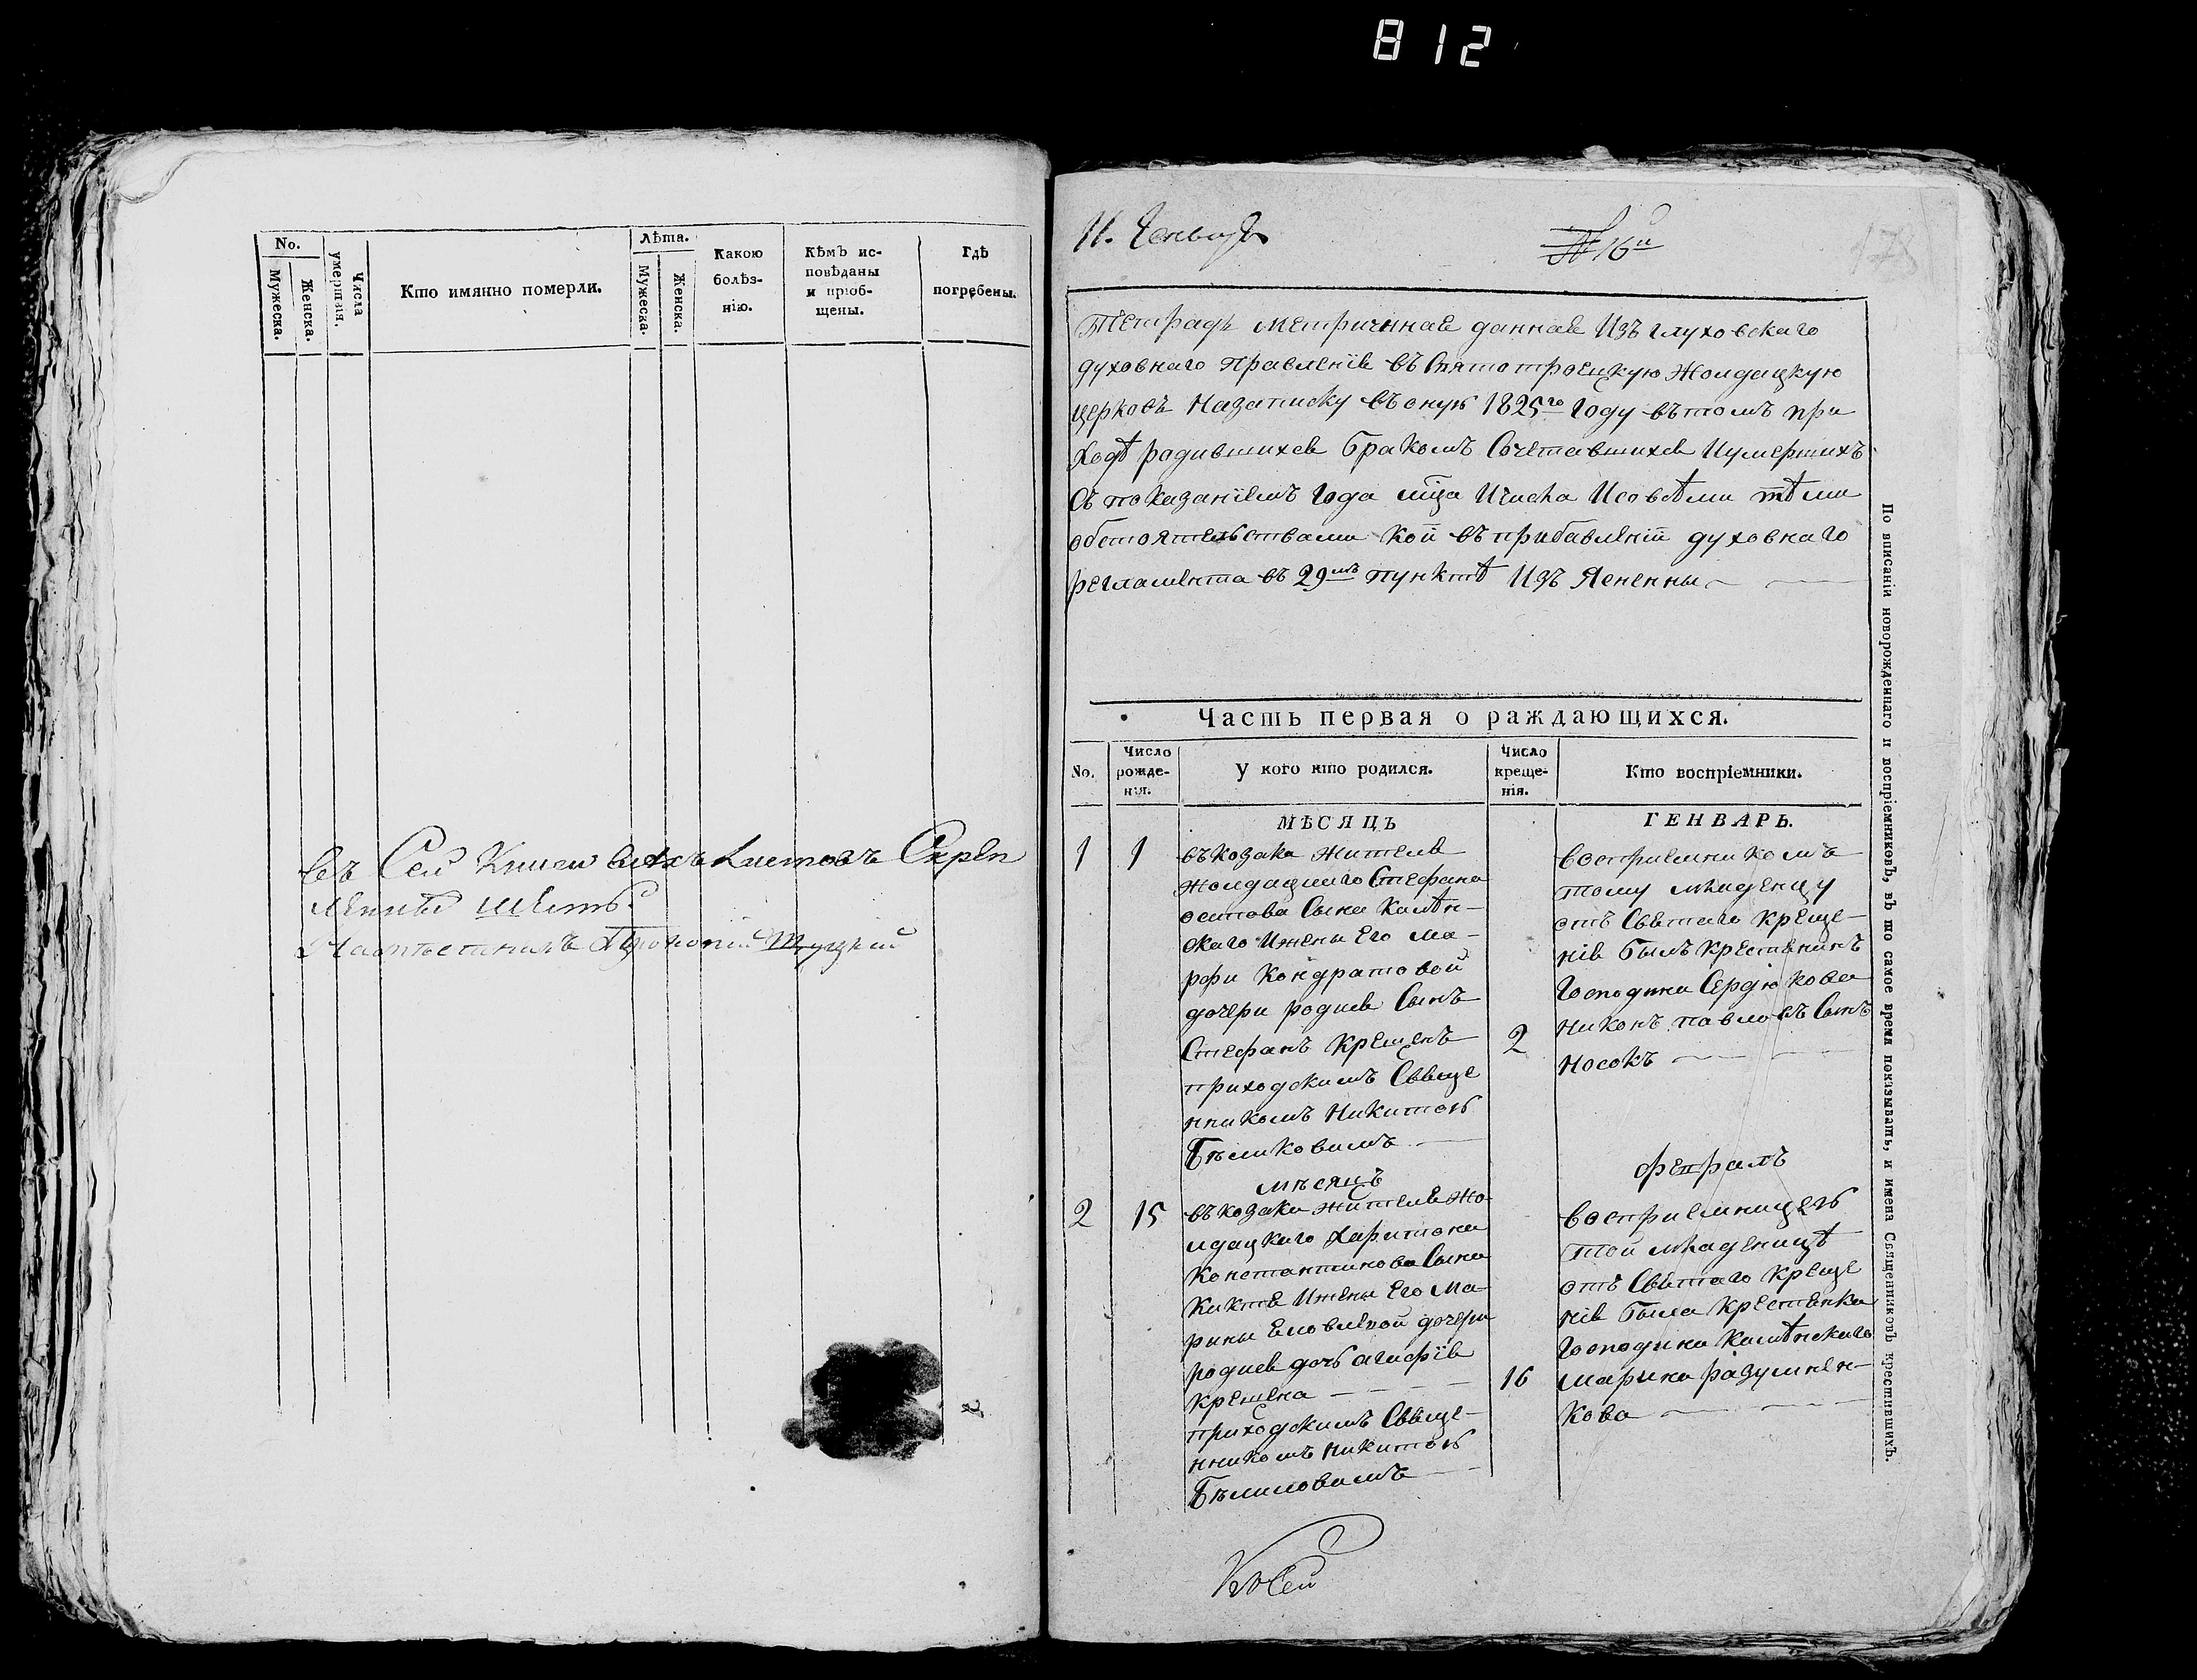 812
No.
Мужеска.
Женска.
Числа умертвiя.
Кто имянно померли.
Лѣта.
Мужеска.
Женска.
Какою
болѣз-
нiю.
Кѣмъ ис-
повѣданы
и прiоб-
щены.
Гдѣ
погребены.
въ Сей Книги всѣхъ Листовъ Скреп
шесть
№ 16й
Тетрадь метричнная данная Изъ глуховскаго
духовнаго правленiя въ Святотроецкую Жолдацкую
церковь Назаписку въоную 1825го Году вътомъ при
ходѣ радившихся Бракомъ Сочетавшихся Иумершихъ
Съ показанiемъ Года мца Ичисла Исовсѣми тѣми
обстоятельствами Коiи въ прибавленiи духовнаго
регламента въ 29мъ пунктѣ Изъ Яснены
Часть первая о раждающихся.
No.
Число
рожде-
нiя.
У кого кто родился.
Число
креще-
нiя.
Кто воспрiемники.
МѢСЯЦЪ
ГЕНВАРЬ.
1 1
въкозака жителя
жолдацкаго Стефана
осипова Сына Камѣн-
скаго Ижены Его Ма-
рфи Кондратовой
дочери родися Сынъ
Стефанъ Крещенъ
приходскимъ Свяще
нникомъ Никитою
Бѣликовимъ
2
восприемникомъ
тому младенцу
отъ Святаго Креще-
нiя Былъ Крестянинъ
Господина Сердюкова
Никонъ павловъ Сынъ
Носокъ
мѣсяцъ
февралъ
2 15
въкозака жителя жо-
лдацкаго Харитона
Константинова Сына
Киктя Ижены Его Ма-
рины Емовлевой дочери
родися дочь агафiя
Крещена
приходскимъ Свяще-
нникомъ Никитою
Бѣликовимъ
16
восприемницею
той младеницѣ
отъ Святаго Креще
нiя Была Крестянка
Господина Камѣнскаго
Марина разумнен-
Кова
По вписанiи новорожденнаго и воспрiемниковъ, въ то самое время показывать, и имена Священниковъ крестившихъ.